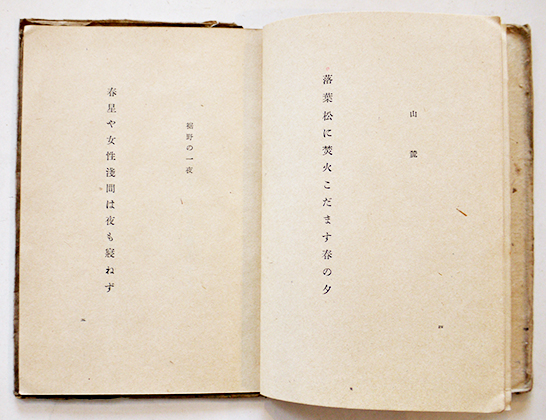 山麓
落葉松に焚火こだます春の夕
裾野の一夜
春星や女性淺間は夜も寝ねず